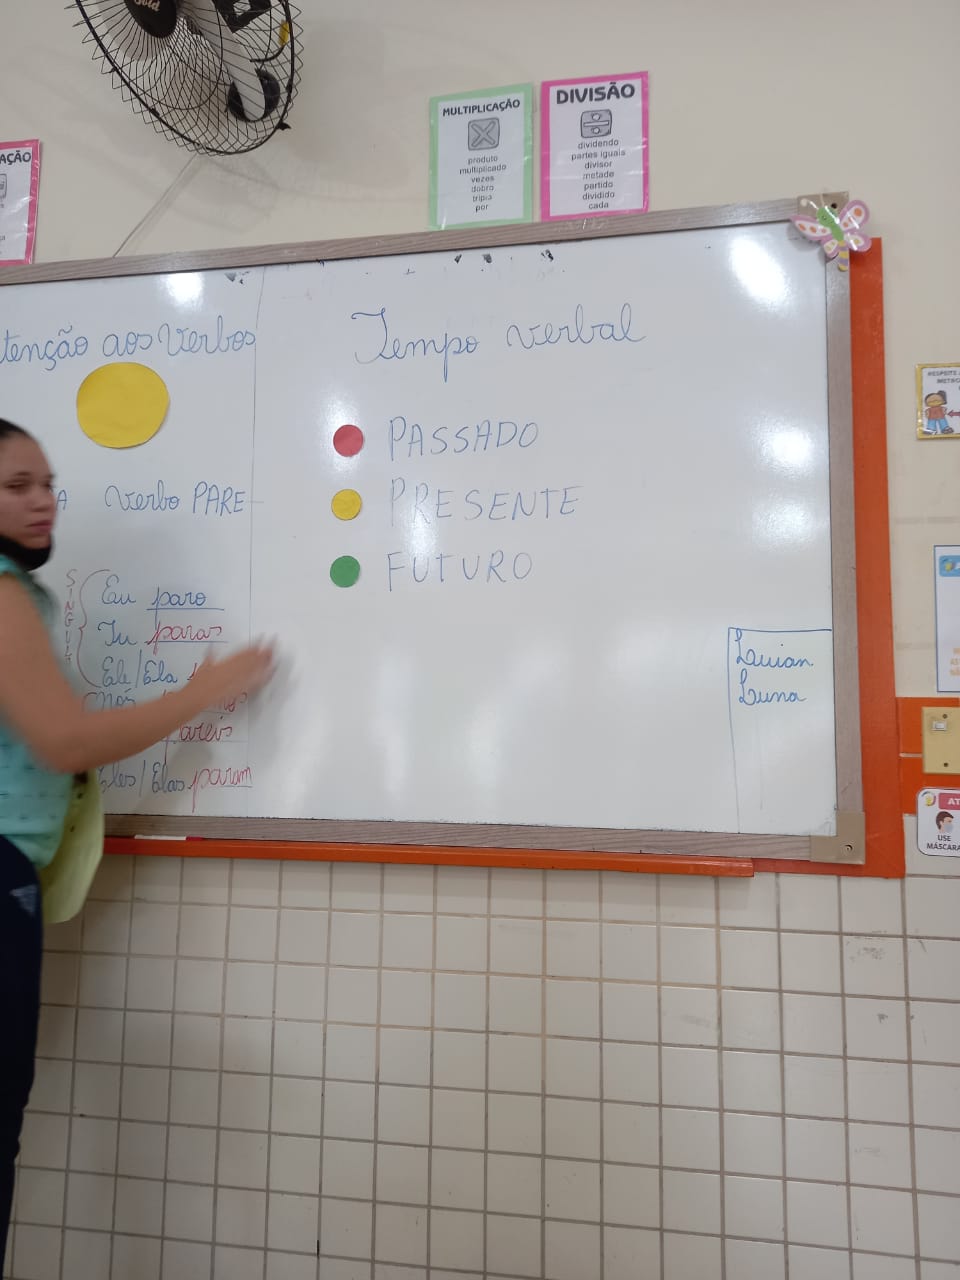 Gold
AÇÃO
MULTIPLICAÇÃO
produto
multiplicado
vezes
dobro
triplo
por
DIVISÃO
dividendo
partes iguais
divisor
metade
partido
dividido
cada
tenção aos Verbos
A Verbo PARE
Eu paro
Tu paras
Ele/Ela
Nós
pareis
Eles/Elas param
Tempo verbal
PASSADO
PRESENTE
FUTURO
Luuan
Luna
RESPEITE
USE
MÁSCARA